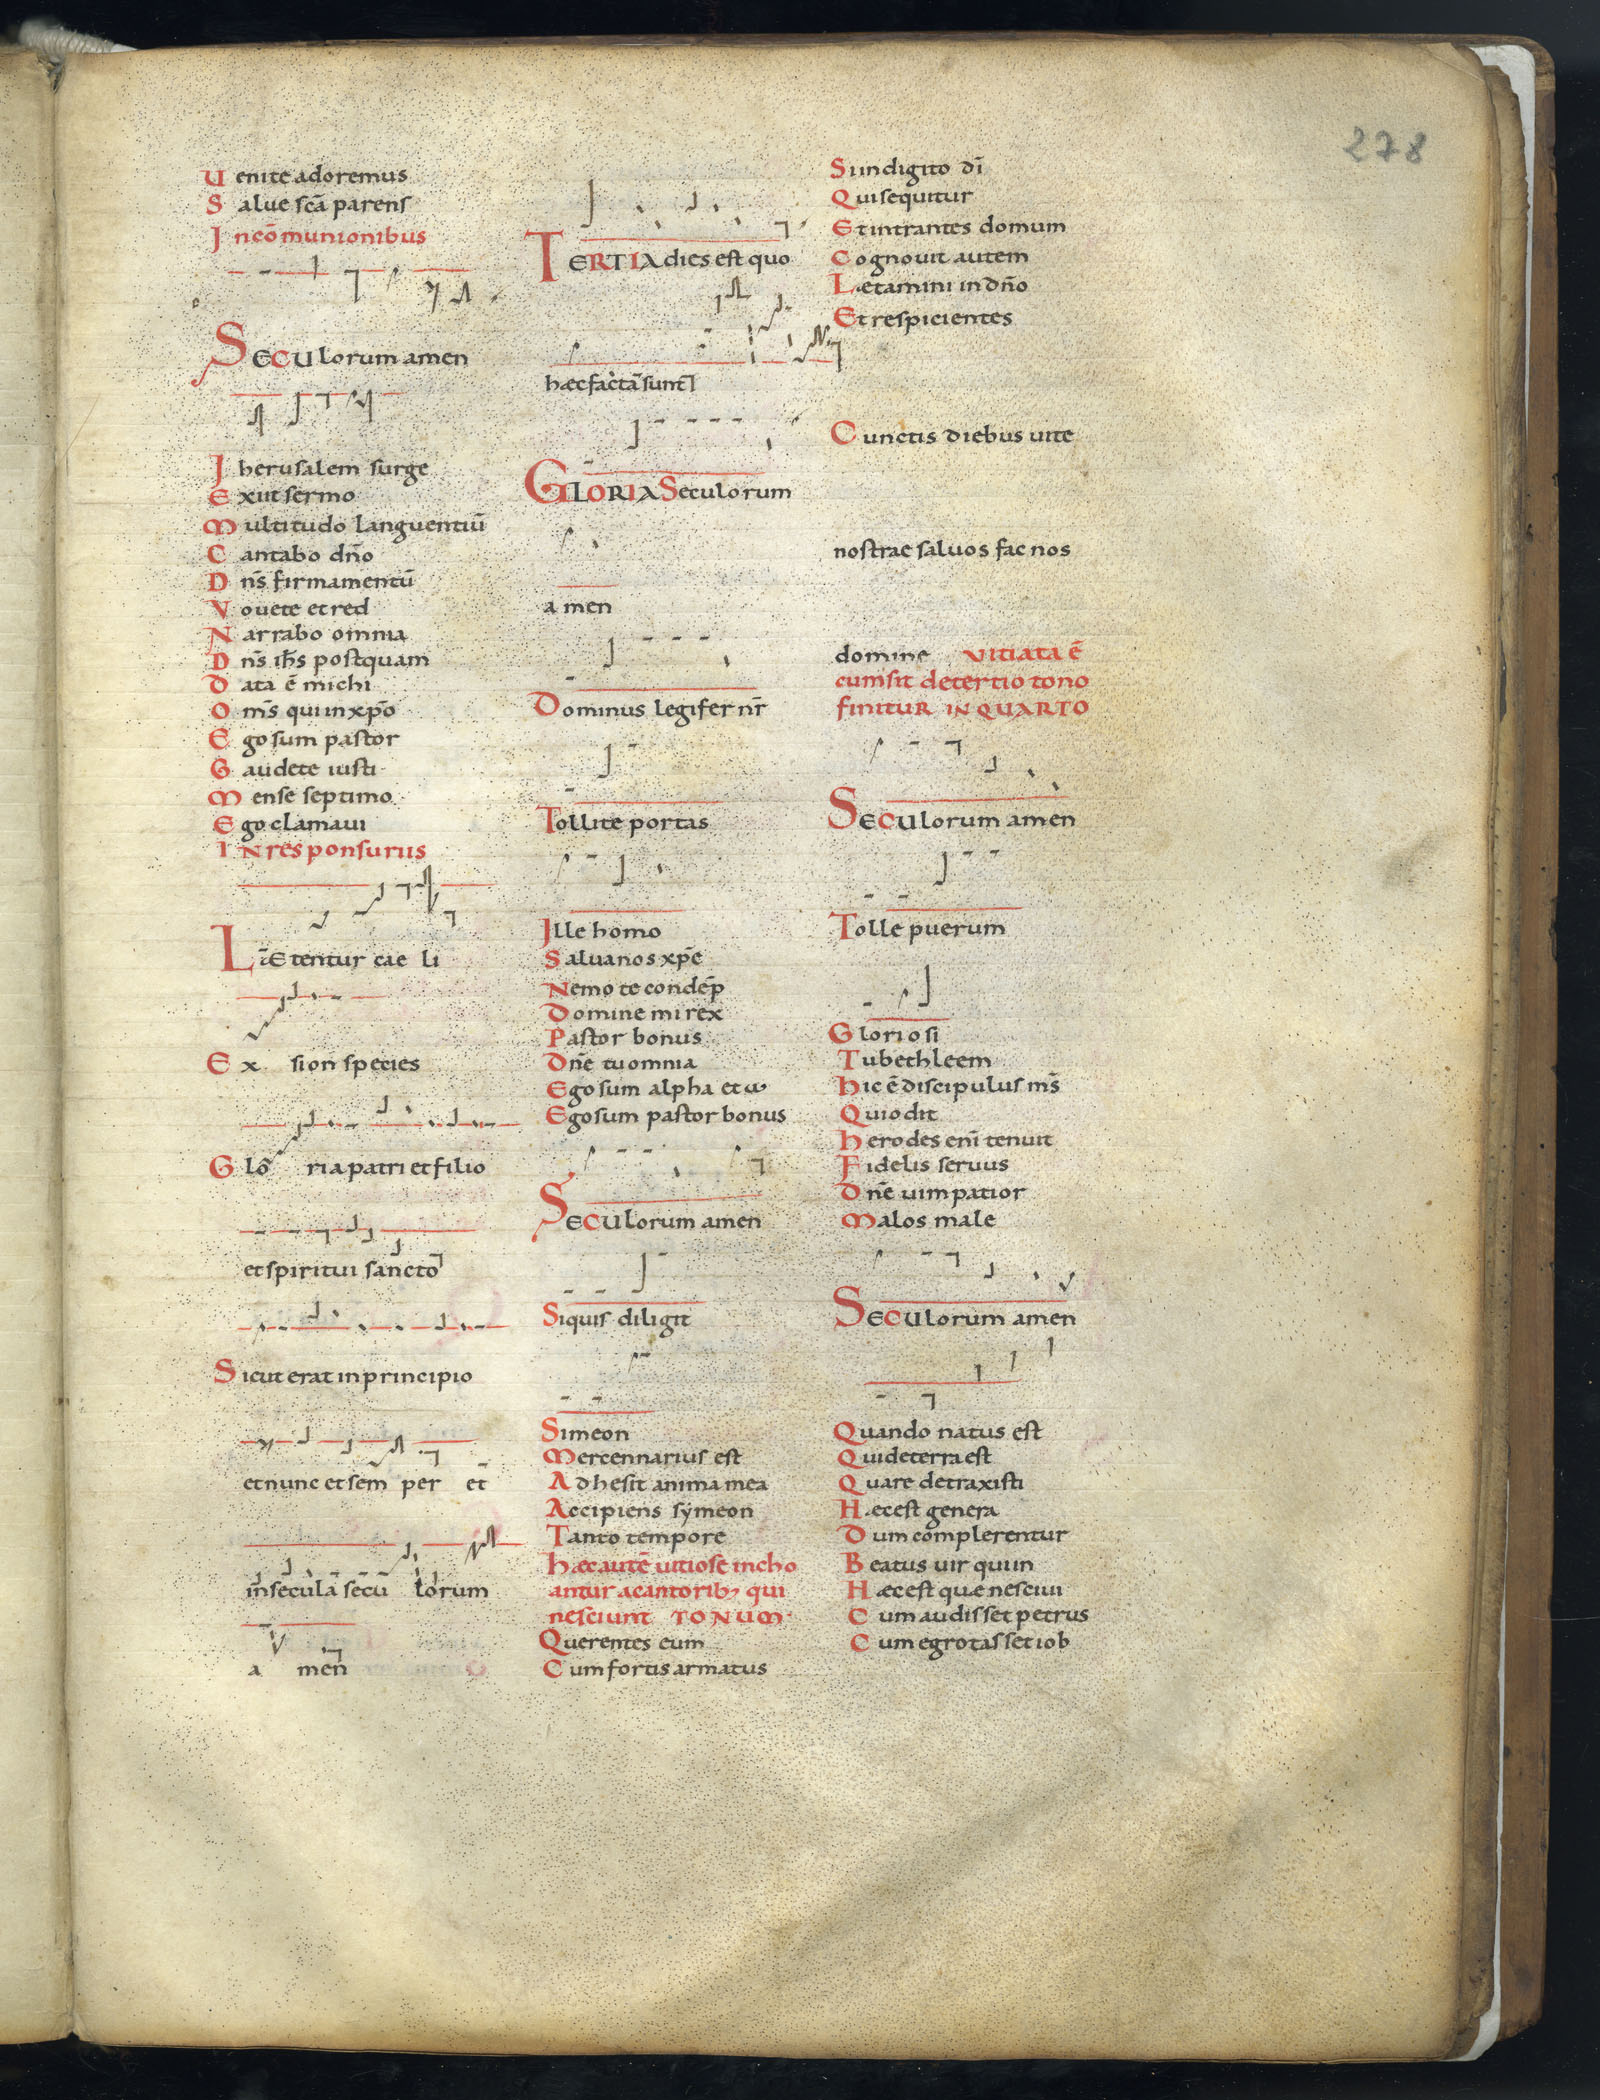 278
Uenite adoremus
Salue scā parens
In cōmunionibus
SECUlorum amen
Jherusalem surge
Exiit sermo
Multitudo languentiū
Cantabo dn̄o
Dn̄s firmamentū
Vouete et red
Narrabo omnia
Dn̄s ih̄s postquam
Data ē michi
Om̄s qui in xp̄o
Ego sum pastor
Gaudete iusti
Mense septimo
Ego clamaui
IN responsuriis
LÆtentur cae li
Ex sion species
Glo ria patri et filio
et spiritui sancto
Sicut erat in principio
et nunc et sem per et
in secula secu lorum
a men
TERTIA dies est quo
hæc facta sunt
GLORIA Seculorum
a men
Dominus legifer nr̄
Tollite portas
Jlle homo
Salua nos xp̄e
Nemo te condep̄
Domine mi rex
Pastor bonus
Dn̄e tu omnia
Ego sum alpha et ω
Ego sum pastor bonus
SECUlorum amen
Siquis diligit
Simeon
Mercennarius est
Adhesit anima mea
Accipiens symeon
Tanto tempore
hæc autē uitiose incho
antur a cantorib; qui
nesciunt TONUM
Querentes eum
Cum fortis armatus
Si in digito dī
Qui sequitur
Et intrantes domum
Cognouit autem
Lætamini in dn̄o
Et respicientes
Cunctis diebus uite
nostrae saluos fac nos
domine Vitiata ē
cum sit de tertio tono
finitUR IN QUARTO
SECUlorum amen
Tolle puerum
Gloriosi
Tu bethleem
hic ē discipulus m̄s
Qui odit
herodes enī tenuit
Fidelis seruus
Dn̄e uim patior
Malos male
SECUlorum amen
Quando natus est
Qui de terra est
Quare detraxisti
Hæc est genera
Dum complerentur
Beatus uir qui in
Hæc est quæ nesciui
Cum audisset petrus
Cum egrotasset iob